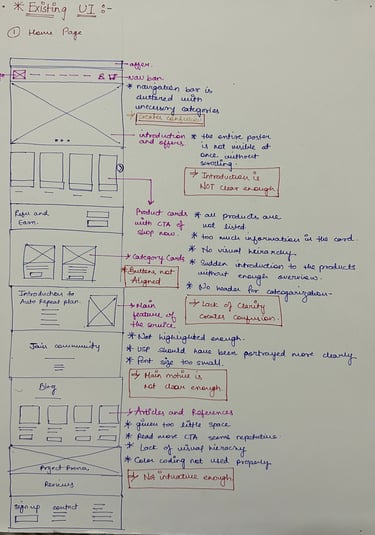 * Existing UI :-
① Home Page
offer.
Nav bar.
* navigation bar is
cluttered with
unnecessary categories
→ Creates confusion
introduction
and offers
* the entire poster
is not visible at
once without
scrolling.
→ Introduction is
NOT clear enough
Product cards
with CTA of
shop now.
* all products are
not listed
* too much information in the card.
* No visual hierarchy
* Sudden introduction to the products
without enough overview.
* No header for categorization
→ Lack of Clarity
Creates confusion.
Refer and
Earn.
Category Cards
* Buttons not
Aligned
Introduction to
Auto Repeat plan.
Main
feature of
the service
* Not highlighted enough.
* USP should have been portrayed more clearly
* Font size too small.
→ Main motive is
not clear enough
Join community
Blog
Articles and References
* given too little space
* Read more CTA seems repetative.
* Lack of visual hierarchy
* Color coding not used properly
→ Not intuitive enough.
Project Promos
Reviews
sign up
contact